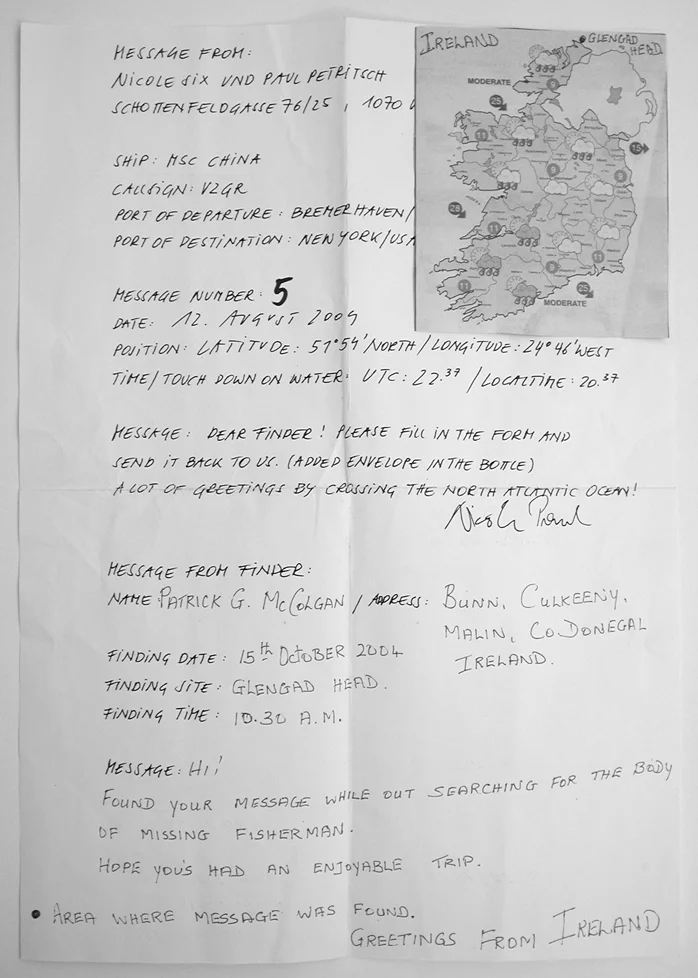 MESSAGE FROM:
NICOLE SIX UND PAUL PETRITSCH
SCHOTTENFELDGASSE 76/25, 1070
SHIP: MSC CHINA
CALLSIGN: V2GR
PORT OF DEPARTURE: BREMERHAVEN/
PORT OF DESTINATION: NEW YORK/USA
IRELAND
GLENGAD HEAD
MODERATE
25
9
11
15
9
9
28
11
11
9
11
25
MODERATE
MESSAGE NUMBER: 5
DATE: 12. AUGUST 2004
POSITION: LATITUDE: 51°54' NORTH / LONGITUDE: 24°46' WEST
TIME/TOUCH DOWN ON WATER: UTC: 22.37 / LOCALTIME: 20.37
MESSAGE: DEAR FINDER! PLEASE FILL IN THE FORM AND
SEND IT BACK TO US. (ADDED ENVELOPE IN THE BOTTLE)
A LOT OF GREETINGS BY CROSSING THE NORTH ATLANTIC OCEAN!
MESSAGE FROM FINDER:
NAME: PATRICK G. McCOLGAN / ADDRESS: BUNN, CULKEENY,
MALIN, CO DONEGAL
IRELAND.
FINDING DATE: 15th OCTOBER 2004
FINDING SITE: GLENGAD HEAD.
FINDING TIME: 10.30 A.M.
MESSAGE: HI!
FOUND YOUR MESSAGE WHILE OUT SEARCHING FOR THE BODY
OF MISSING FISHERMAN.
HOPE YOU'S HAD AN ENJOYABLE TRIP.
• AREA WHERE MESSAGE WAS FOUND.
GREETINGS FROM IRELAND